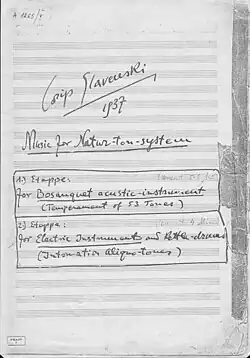 Josip Slavenski
1937
Music for Natur-ton-system
1.) Etappe:
for Bosanquet acustic-instrument
(Temperament of 53 Tones)
2.) Etappe:
for Electric Instrument and Kettle-drums
(Intonation Aliquo-tones)